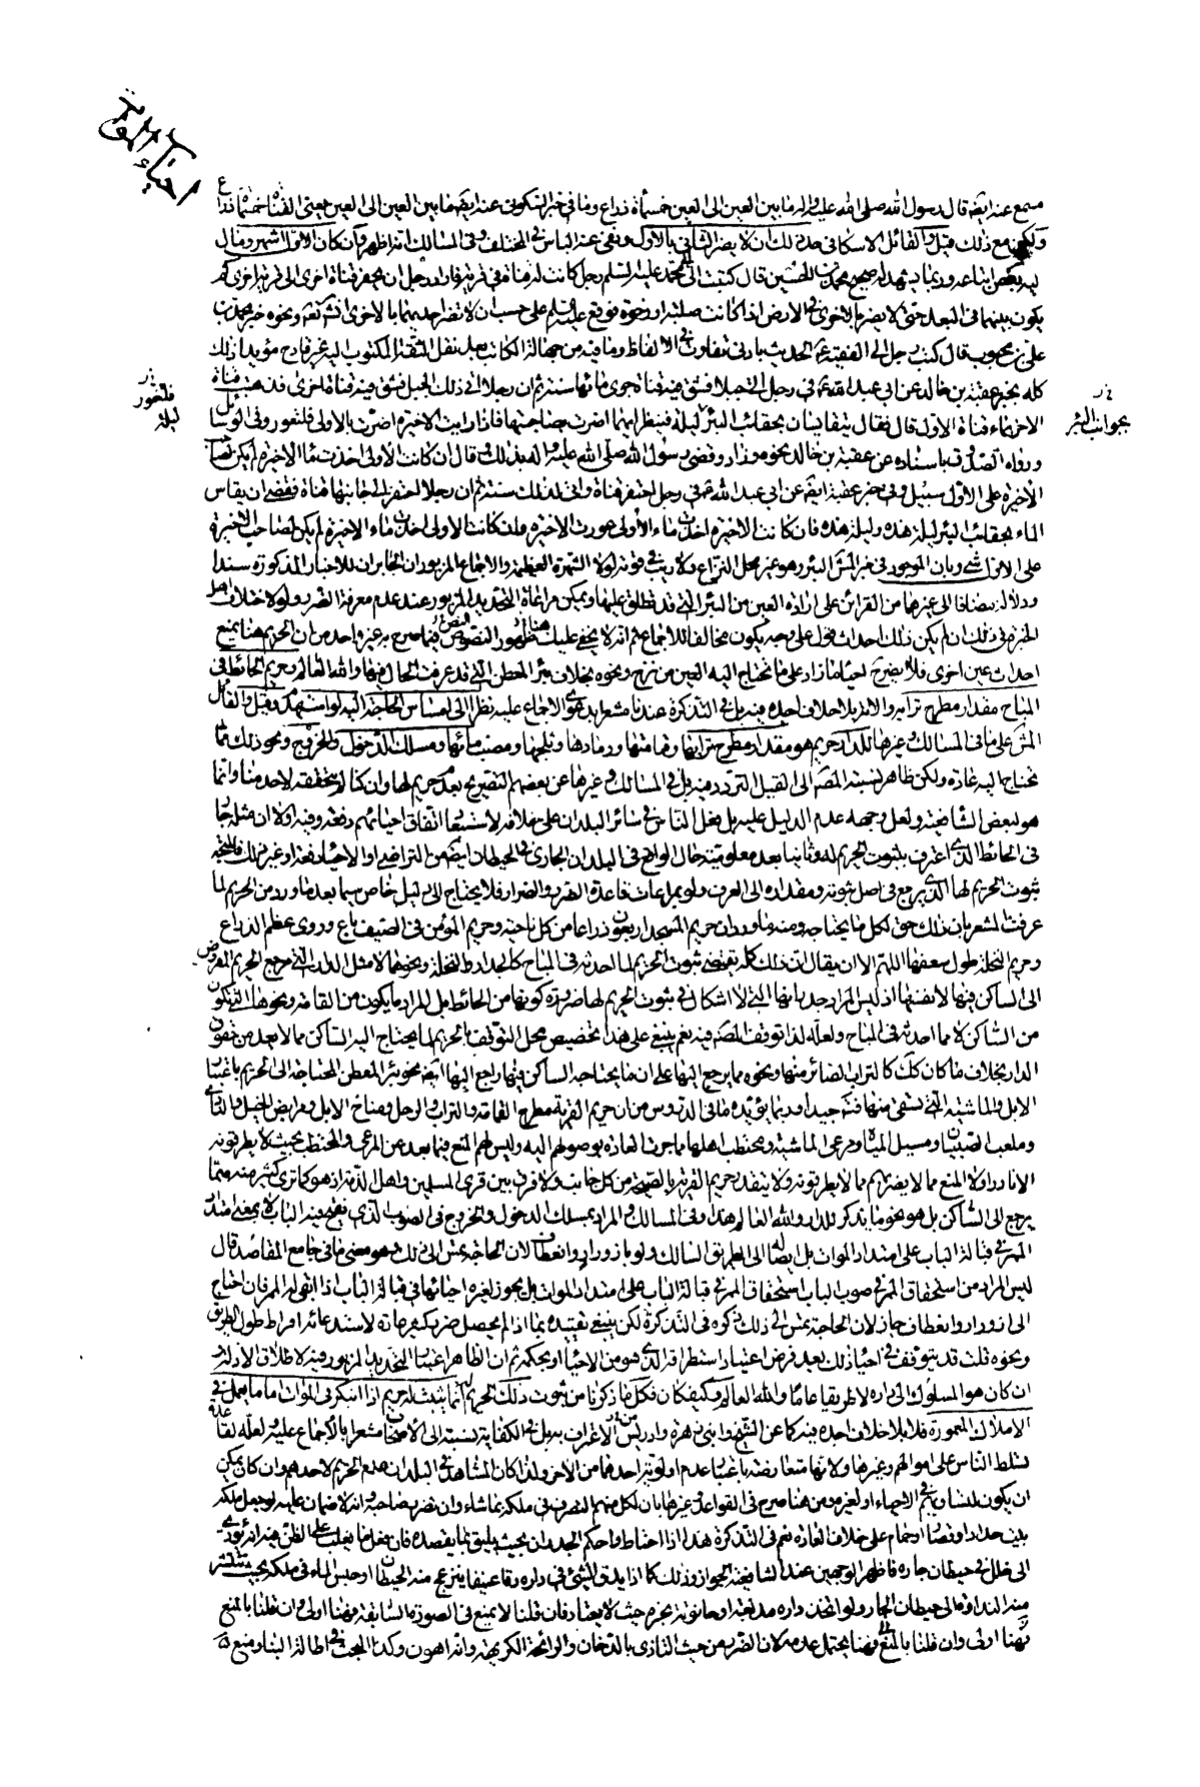 احياء الموات
مسمع عنه ايضا قال رسول الله صلى الله عليه واله ما بين العين الى العين خمسمأة ذراع وما في خبر السكوني عنه ايضا ما بين العين الى العين يعني القناة خمسمأة ذراع
ولكن مع ذلك قيل والقائل الاسكافي حد ذلك ان لا يضر الثاني بالاول ونفى عنه الباس في المختلف وفي المسالك انه اظهر وان كان الاول اشهر ومال
اليه بعض اتباعه وربما يشهد له صحيح محمد بن الحسين قال كتبت الى ابي محمد عليه السلم رجل كانت له قناة في قرية فاراد رجل ان يحفر قناة اخرى الى قرية اخرى كم
يكون بينهما في البعد حتى لا يضر بالاخرى في الارض اذا كانت صلبة او رخوة فوقع عليه السلم على حسب ان لا تضر احديهما بالاخرى انشاءالله ونحوه خبر محمد بن
علي بن محبوب قال كتب رجل الى الفقيه الحديث بادنى تفاوت في الالفاظ وما فيه من جهالة الكاتب بعد نقل الثقة المكتوب اليه غير قادح مؤيدا ذلك
كله بخبر عقبة بن خالد عن ابي عبد الله في رجل اتى جبلا فشق فيه قناة جرى مائها سنة ثم ان رجلا اتى ذلك الجبل فشق فيه قناة اخرى فذهبت قناة
الاخر بماء قناة الاول قال فقال يتقايسان بحقائب البئر ليلة ليلة فينظر ايهما اضرت بصاحبتها فاذا رايت الاخيرة اضرت بالاولى فلتعور وفي الوسائل
بجوانب البئر
فلتعور
ليلة
ورواه الصدوق باسناده عن عقبة بن خالد نحوه وزاد وقضى رسول الله صلى الله عليه واله بذلك وقال ان كانت الاولى اخذت ماء الاخيرة لم يكن لصاحب
الاخيرة على الاول سبيل وفي خبر عقبة ايضا عن ابي عبد الله في رجل احتفر قناة واتى لذلك سنة ثم ان رجلا احتفر الى جانبها قناة فقضى ان يقاس
الماء بحقائب البئر ليلة هذه وليلة هذه فان كانت الاخيرة اخذت ماء الاولى عورت الاخيرة وان كانت الاولى اخذت ماء الاخيرة لم يكن لصاحب الاخيرة
على الاول شيء وبان الموجود في خبر البئر وهو غير محل النزاع ولا ريب في قوته لولا الشهرة العظيمة والاجماع المزبوران الجابران للاخبار المذكورة سندا
ودلالة مضافا الى غيرها من القرائن على ارادة العين من البئر التي قد تطلق عليها ويمكن مراعاة التحديد المزبور عند عدم معرفة الضرر ولولا خلاف اهل
الخبرة في ذلك ان لم يكن ذلك احداث قول على وجه يكون مخالفا للاجماع ثم انه لا يخفى عليك ظهور النصوص فيما صرح به غير واحد من ان الحريم هنا يمنع
احداث عين اخرى فلا احياء ما زاد على ما تحتاج اليه العين من نزح ونحوه بخلاف بئر المعطن التي قد عرفت الحال فيها والله العالم وحريم الحائط في
المباح مقدار مطرح ترابه والالة بلا خلاف اجده فيه بل في التذكرة عندنا مشعرا بدعوى الاجماع عليه نظرا الى امساس الحاجة اليه لو استهدم وقيل والقائل
على ما في المسالك وغيرها للدار حريم هو مقدار مطرح ترابها وقمامتها ورمادها وثلجها ومصب مائها ومسلك الدخول والخروج ونحو ذلك مما
تحتاج اليه عادة ولكن ظاهر نسبة المصنف الى القيل التردد فيه بل في المسالك وغيرها عن بعضهم التصريح بعدم حريم لها وان كنا لم نتحققه لاحد منا وانما
هو لبعض الشافعية ولعل وجهه عدم الدليل عليه بل فعل الناس في سائر البلدان على خلافه لاستبعاد اتفاق احيائهم دفعة وفيه اولا ان مثله جار
في الحائط الذي اعترف بثبوت الحريم له وثانيا بعد معلومية حال الواضح في البلدان الجاري في الحيطان ايضا من التراضي او الاحياء دفعة او غير ذلك
ثبوت الحريم لها الذي يرجع في اصل ثبوته ومقداره الى العرف ولو بمراعات قاعدة الضرر والضرار فلا يحتاج الى دليل خاص سيما بعد ما ورد من الحريم لما
عرفت المشعر بان ذلك حق لكل ما يحتاجه ومنه ما ورد ان حريم المسجد اربعون ذراعا من كل ناحية وحريم المؤمن في الصيف باع وروى عظم الذراع
وحريم النخلة طول سعفها اللهم الا ان يقال ان ذلك كله يقتضي ثبوت الحريم لما احدثه في المباح كالجدار والنخلة ونحوها لا مثل الدار التي مرجع الحريم المفروض
الى الساكن فيها لا نفسها اذ ليس المراد جدرانها التي لا اشكال في ثبوت الحريم لها ضرورة كونها من الحائط بل المراد ما يكون من القمامة ونحوها التي تكون
من الساكن لا مما احدثه في المباح ولعله لذا توقف المصنف فيه نعم ينبغي على هذا تخصيص محل التوقف بالحريم لما يحتاج اليه الساكن مما لا يعد من حقوق
الدار بخلاف ما كان كك كالتراب الصائر منها ونحوه مما يرجع اليها على ان ما يحتاجه الساكن فيها راجع اليها ايضا نحو بئر المعطن المحتاجة الى الحريم باعتبار
الابل والماشية التي تسقى منها فتامل جيدا وربما يؤيده ما في الدروس من ان حريم القرية مطرح القمامة والتراب والوحل ومناخ الابل ومرابض الخيل والنادي
وملعب الصبيان ومسيل المياه ومرعى الماشية ومحتطب اهلها مما جرت العادة بوصولهم اليه وليس لهم المنع فيما بعد من المرعى والمحتطب بحيث لا يطرقونه
الا نادرا ولا المنع مما لا يضربهم مما لا يطرقونه ولا يتقدر حريم القرية بالصيحة من كل جانب ولا فرق بين قرى المسلمين واهل الذمة اذ هو كما ترى كثير منه مما
يرجع الى الساكن بل هو نحو ما يذكر للدار والله العالم هذا وفي المسالك والمراد بمسلك الدخول والخروج في الصوب الذي يفتح فيه الباب لا بمعنى
الممر في قبالة الباب على امتداد الموات بل ايصاله الى الطريق السالك ولو بازورار وانعطاف لان الحاجة تمس الى ذلك وهو معنى ما في جامع المقاصد قال
ليس المراد من استحقاق الممر في صوب الباب استحقاق الممر في قبالة الباب على امتداد الموات بل يجوز لغيره احيائها في قبالة الباب اذا ابقى له الممر فان احتاج
الى ازورار وانعطاف جاز لان الحاجة تمس الى ذلك ذكره في التذكرة لكن ينبغي تقييده بما اذا لم يحصل ضرر كثير عادة لاستدعائه افراط طول الطريق
ونحوه قلت قد يتوقف في احياء ذلك بعد فرض اعتياد استطراقه الذي هو من الاحياء او بحكمه ثم ان الظاهر اعتبار التحديد المزبور فيه لاطلاق الادلة
ان كان هو المسلوك الى داره لا طريقا عاما والله العالم وكيف كان فكل ما ذكرنا من ثبوت ذلك الحريم انما يثبت له حريم اذا ابتكر في الموات اما ما يعمل في
الاملاك المعمورة فلا بلا خلاف اجده بينه كما عن الشيخ وابني زهرة وادريس الاعتراف به بل في الكفاية نسبته الى الاصحاب مشعرا بالاجماع عليه ولعله لقاعدة
تسلط الناس على اموالهم وغيرها ولانها متعارضة باعتبار عدم اولوية احدها من الاخر ولذا كان المشاهد في البلدان عدم الحريم لاحدهم وان كان يمكن
ان يكون لتساويهم في الاحياء او لغيره ومن هنا صرح في القواعد وغيرها بان لكل منهم التصرف في ملكه بما شاء وان تضرر صاحبه ولا ضمان عليه لو جعل ملكه
بيت حداد او قصار او حمام على خلاف العادة نعم في التذكرة هذا اذا احتاط واحكم الجدران بحيث يليق بما يقصده فان فعل ما يغلب على الظن منه انه يؤدي
الى خلل في حيطان جاره فاظهر الوجهين عند الشافعية الجواز وذلك كما اذا يدق الشيء في داره دقا عنيفا ينزعج منه الحيطان او حبس الماء في ملكه بحيث تنتشر
منه النداوة الى حيطان الجار ولو اتخذ داره مدبغة او حانوته مخبزة حيث لا يعتاد فان قلنا لا يمنع في الصورة السابقة فهنا اولى وان قلنا بالمنع
فهنا يحتمل عدمه لان الضرر من حيث التاذي بالدخان والرائحة الكريهة وانه اهون وكذا البحث في اطالة البناء ومنع